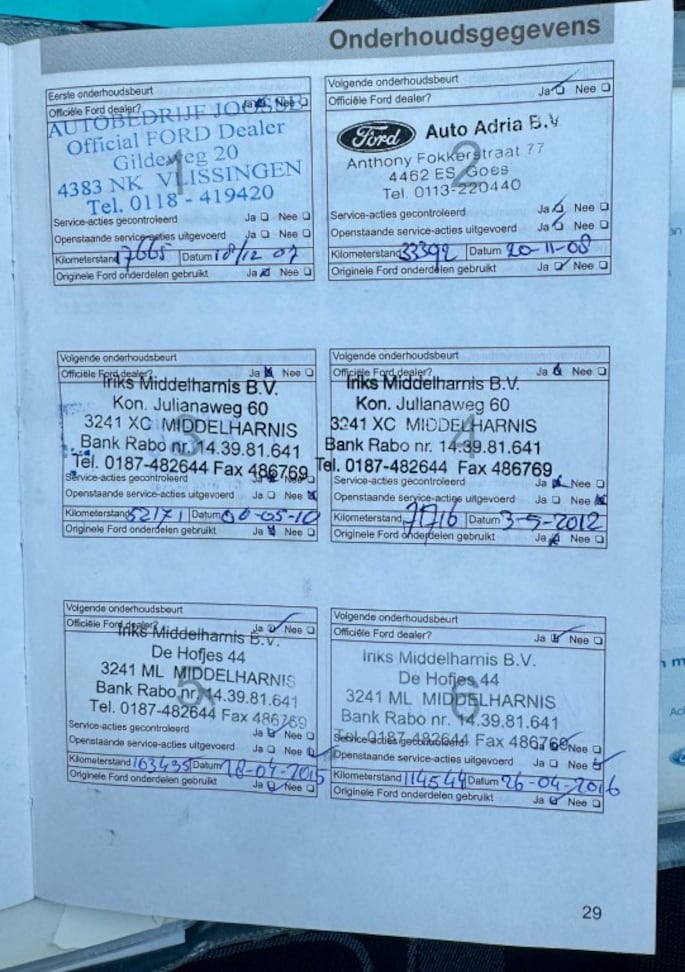 Onderhoudsgegevens
Eerste onderhoudsbeurt
Officiële Ford dealer? Ja Nee
AUTOBEDRIJF JOOSSE
Official FORD Dealer
Gildeweg 20
1
4383 NK VLISSINGEN
Tel. 0118 - 419420
Service-acties gecontroleerd Ja Nee
Openstaande service-acties uitgevoerd Ja Nee
Kilometerstand 17665 Datum 18/12 07
Originele Ford onderdelen gebruikt Ja Nee
Volgende onderhoudsbeurt
Officiële Ford dealer? Ja Nee
Ford Auto Adria B.V
Anthony Fokkerstraat 77
2
4462 ES Goes
Tel. 0113-220440
Service-acties gecontroleerd Ja Nee
Openstaande service-acties uitgevoerd Ja Nee
Kilometerstand 33392 Datum 20-11-08
Originele Ford onderdelen gebruikt Ja Nee
Volgende onderhoudsbeurt
Officiële Ford dealer? Ja Nee
Iriks Middelharnis B.V.
Kon. Julianaweg 60
3
3241 XC MIDDELHARNIS
Bank Rabo nr. 14.39.81.641
Tel. 0187-482644 Fax 486769
Service-acties gecontroleerd
Openstaande service-acties uitgevoerd Ja Nee
Kilometerstand 52171 Datum 06-05-10
Originele Ford onderdelen gebruikt Ja Nee
Volgende onderhoudsbeurt
Officiële Ford dealer? Ja Nee
Iriks Middelharnis B.V.
Kon. Julianaweg 60
4
3241 XC MIDDELHARNIS
Bank Rabo nr. 14.39.81.641
Tel. 0187-482644 Fax 486769
Service-acties gecontroleerd Ja Nee
Openstaande service-acties uitgevoerd Ja Nee
Kilometerstand 71716 Datum 3-5-2012
Originele Ford onderdelen gebruikt Ja Nee
Volgende onderhoudsbeurt
Officiële Ford dealer? Ja Nee
Iriks Middelharnis B.V.
De Hofjes 44
3241 ML MIDDELHARNIS
5
Bank Rabo nr. 14.39.81.641
Tel. 0187-482644 Fax 486769
Service-acties gecontroleerd Ja Nee
Openstaande service-acties uitgevoerd Ja Nee
Kilometerstand 103435 Datum 28-04-2015
Originele Ford onderdelen gebruikt Ja Nee
Volgende onderhoudsbeurt
Officiële Ford dealer? Ja Nee
Iriks Middelharnis B.V.
De Hofjes 44
3241 ML MIDDELHARNIS
6
Bank Rabo nr. 14.39.81.641
Tel. 0187-482644 Fax 486769
Service-acties gecontroleerd Ja Nee
Openstaande service-acties uitgevoerd Ja Nee
Kilometerstand 114544 Datum 26-04-2016
Originele Ford onderdelen gebruikt Ja Nee
29